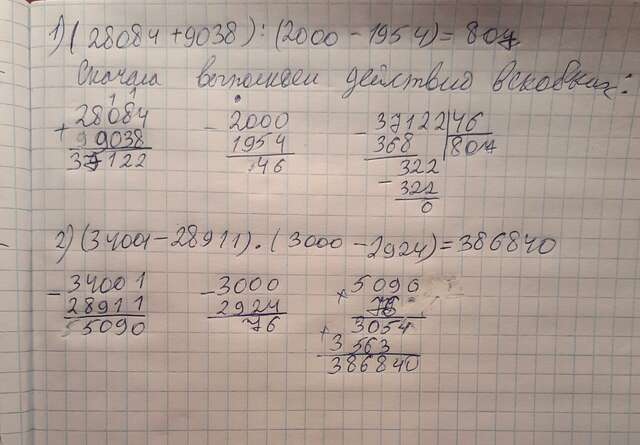 1) (28084+9038) : (2000-1954)=807
Сначала выполняем действия в скобках:
1 1
28084
+
9038
37122
-
2000
1954
46
-
37122|46
368 |807
322
-
322
0
2) (34001-28911)·(3000-2924)=386840
-
34001
28911
5090
-
3000
2924
76
×
5090
76
+
3054
3563
386840